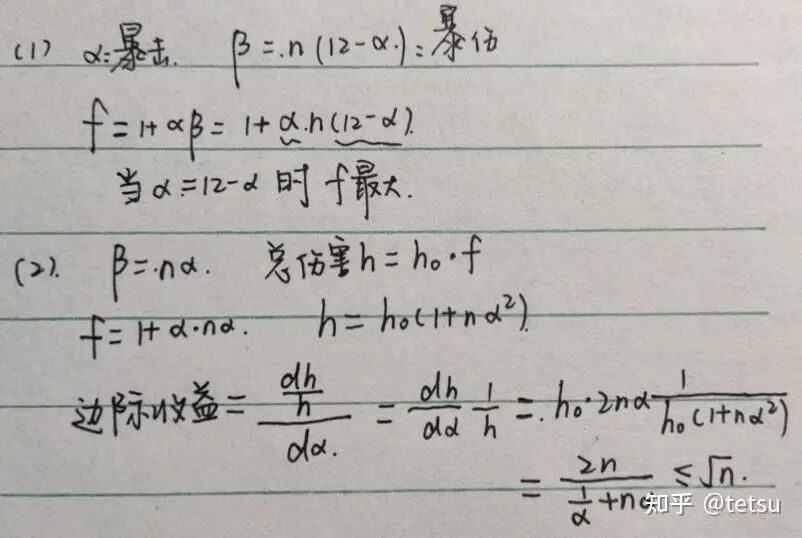 (1) α=暴击. β=.n(12-α.)=暴伤
f=1+αβ=1+α.n(12-α).
当α=12-α时f最大.
(2). β=.nα. 总伤害h=h₀·f
f=1+α·nα. h=h₀(1+nα²).
边际收益=\frac{\frac{dh}{h}}{dα.}=\frac{dh}{dα}\frac{1}{h}=.h₀·2nα\frac{1}{h₀(1+nα²)}
=\frac{2n}{\frac{1}{α}+n}≤√n.
知乎 @tetsu